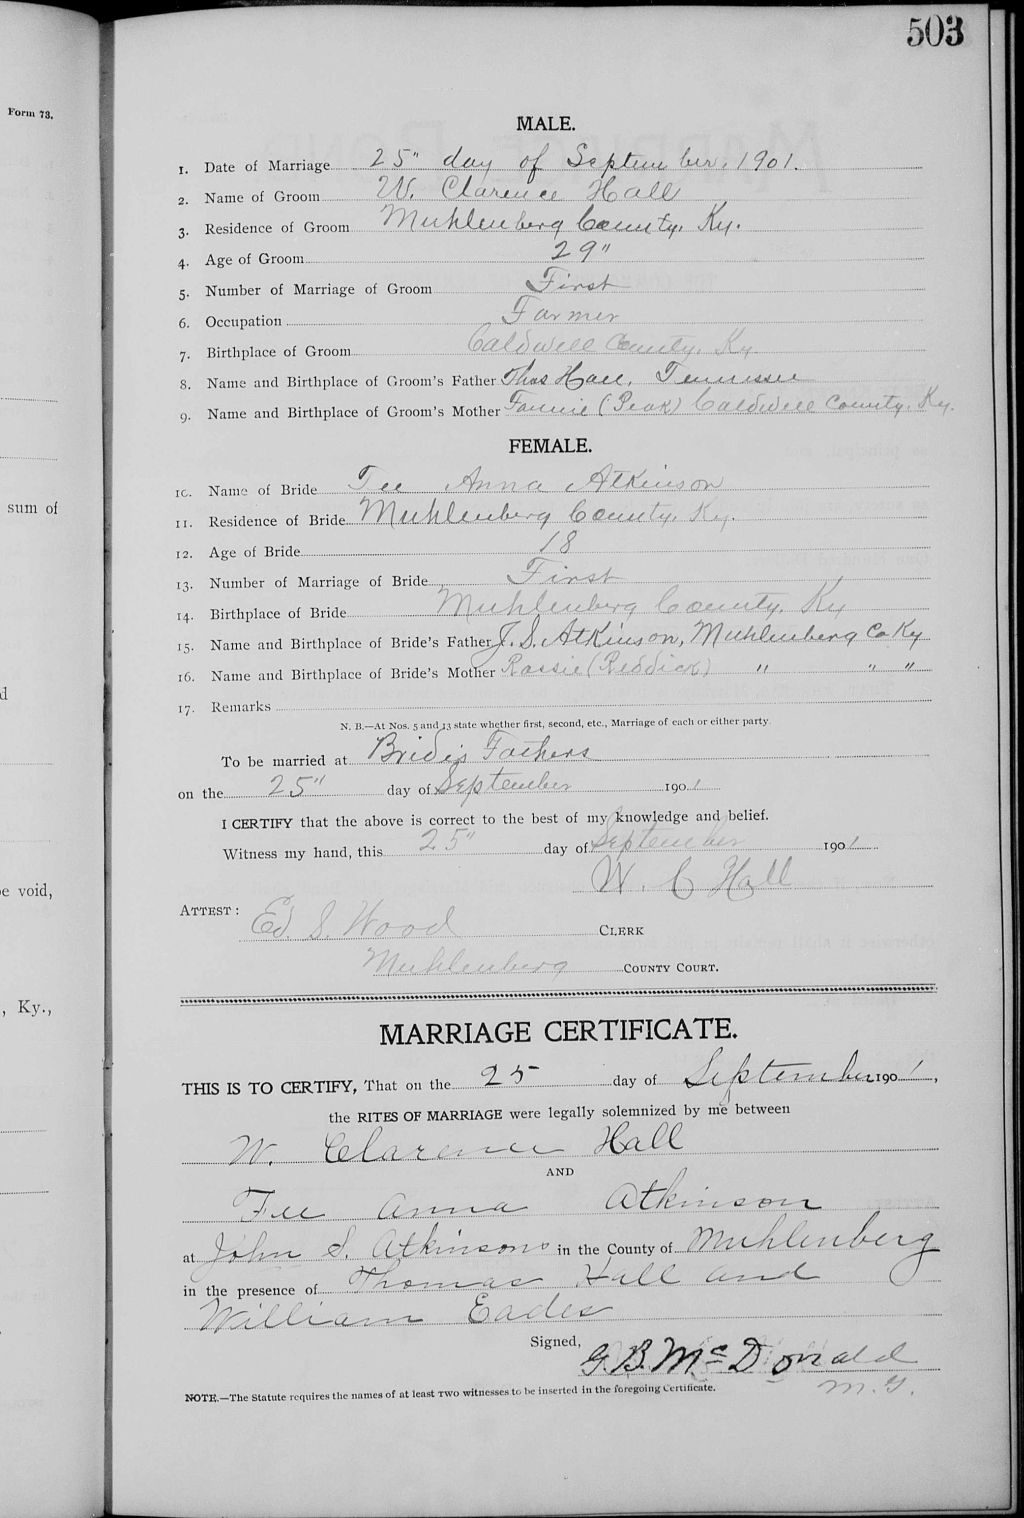 503
Form 73.
MALE.
1. Date of Marriage 25" day of September, 1901.
2. Name of Groom W. Clarence Hall
3. Residence of Groom Muhlenberg County, Ky.
4. Age of Groom 29"
5. Number of Marriage of Groom First
6. Occupation Farmer
7. Birthplace of Groom Caldwell County, Ky
8. Name and Birthplace of Groom's Father Thos Hall, Tennessee
9. Name and Birthplace of Groom's Mother Fannie (Peak) Caldwell County, Ky.
FEMALE.
10. Name of Bride Anna Atkinson
11. Residence of Bride Muhlenberg County, Ky.
sum of
12. Age of Bride 18
13. Number of Marriage of Bride First
14. Birthplace of Bride Muhlenberg County, Ky
15. Name and Birthplace of Bride's Father J. S. Atkinson, Muhlenberg Co Ky
16. Name and Birthplace of Bride's Mother Rossie (Reddick) " " "
17. Remarks
N. B.—At Nos. 5 and 13 state whether first, second, etc., Marriage of each or either party.
To be married at Bride's Fathers
on the 25" day of September 1901
I CERTIFY that the above is correct to the best of my knowledge and belief.
Witness my hand, this 25" day of September 1901
W. C Hall
e void,
ATTEST: Ed. S. Wood CLERK
Muhlenberg COUNTY COURT.
, Ky.,
MARRIAGE CERTIFICATE.
THIS IS TO CERTIFY, That on the 25 day of September 1901,
the RITES OF MARRIAGE were legally solemnized by me between
W. Clarence Hall
AND
Anna Atkinson
at John S. Atkinsons in the County of Muhlenberg
in the presence of Thomas Hall and
William Eades
Signed,
G. B. McDonald
M. G.
NOTE.—The Statute requires the names of at least TWO witnesses to be inserted in the foregoing Certificate.